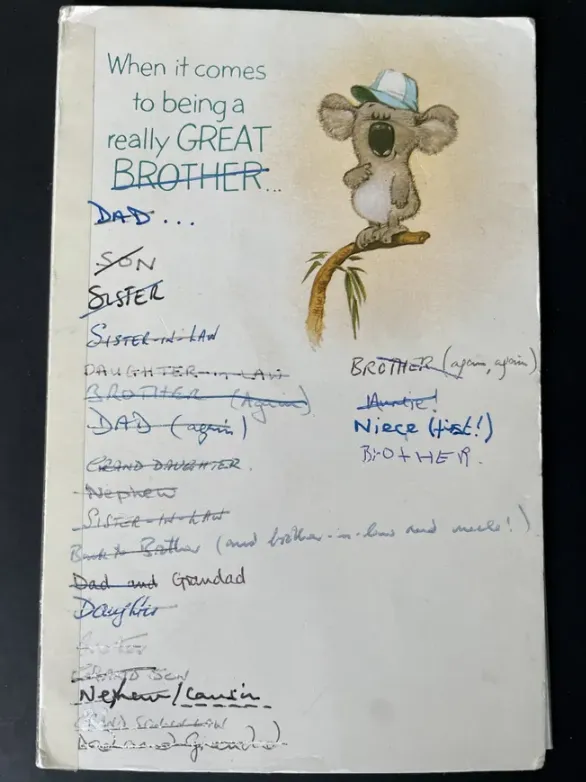 When it comes
to being a
really GREAT
BROTHER...
DAD...
SON
SISTER
SISTER-IN-LAW
DAUGHTER-IN-LAW
BROTHER (Again)
DAD (again)
GRAND DAUGHTER.
Nephew
SISTER-IN-LAW
Back to Brother (and brother-in-law and uncle!)
Dad and Grandad
Daughter
GRAND SON
Nephew/Cousin
GRAND
Dad and
BROTHER (again, again)
Auntie!
Niece (first!)
BROTHER.